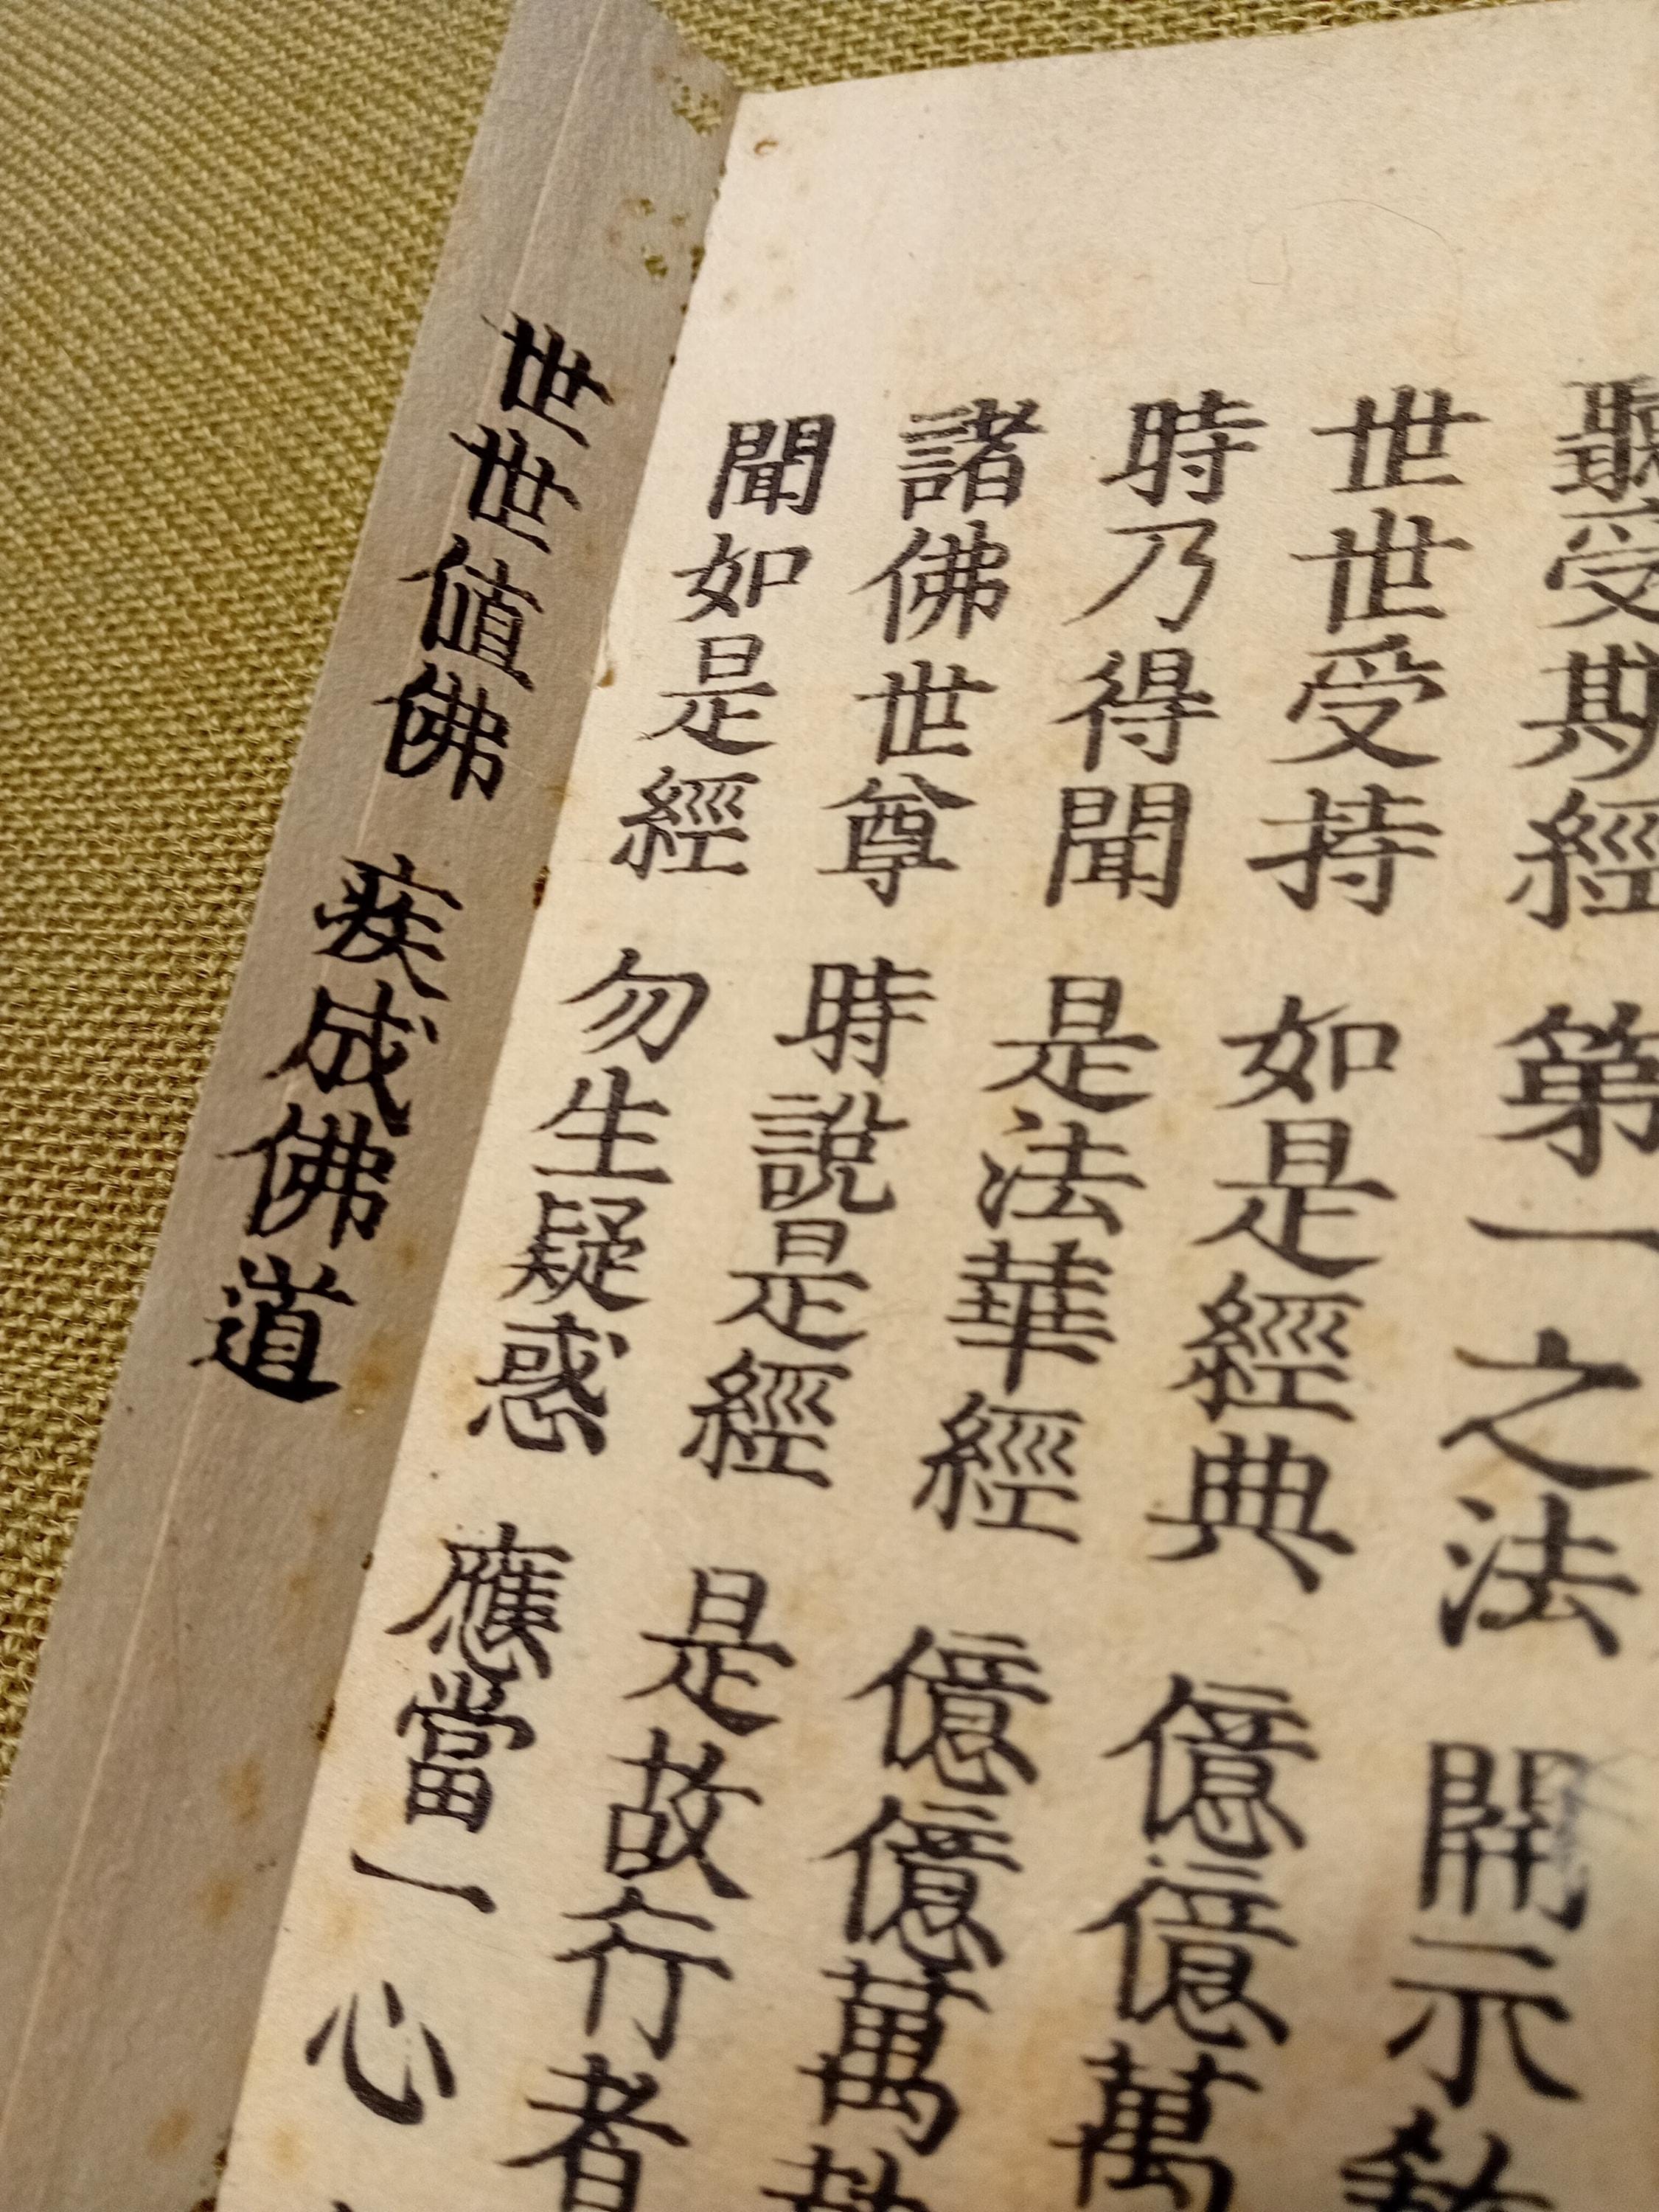 聽受斯經 第一之法 開示教
世世受持 如是經典 億億萬
時乃得聞 是法華經 億億萬劫
諸佛世尊 時說是經 是故行者
聞如是經 勿生疑惑 應當一心
世世值佛 疾成佛道